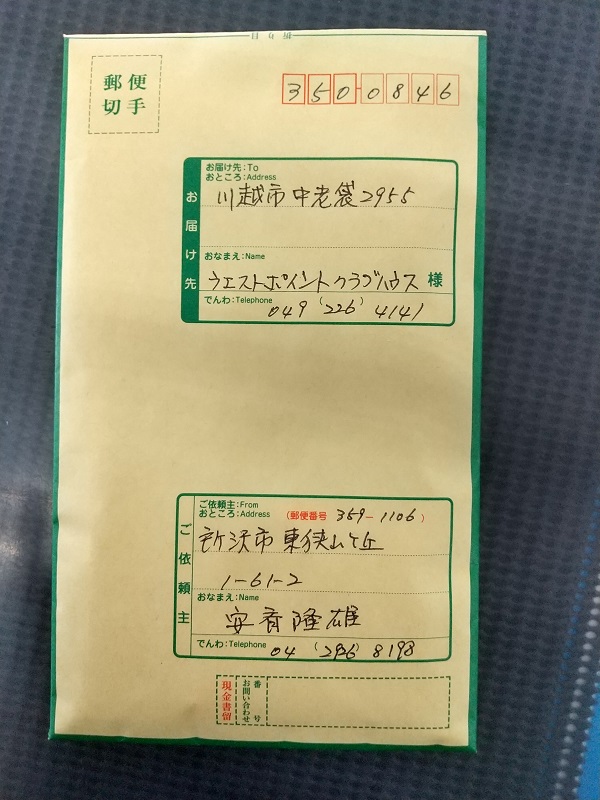 郵便
切手
3500846
お届け先
お届け先:To
おところ:Address
川越市中老袋2955
おなまえ:Name
ウエストポイントクラブハウス 様
でんわ:Telephone
049 (226) 4141
ご依頼主
ご依頼主:From
おところ:Address (郵便番号 359-1106)
所沢市東狭山ケ丘
1-61-2
おなまえ:Name
安斉隆雄
でんわ:Telephone
04 (2936) 8198
現金書留
お問い合わせ
番号